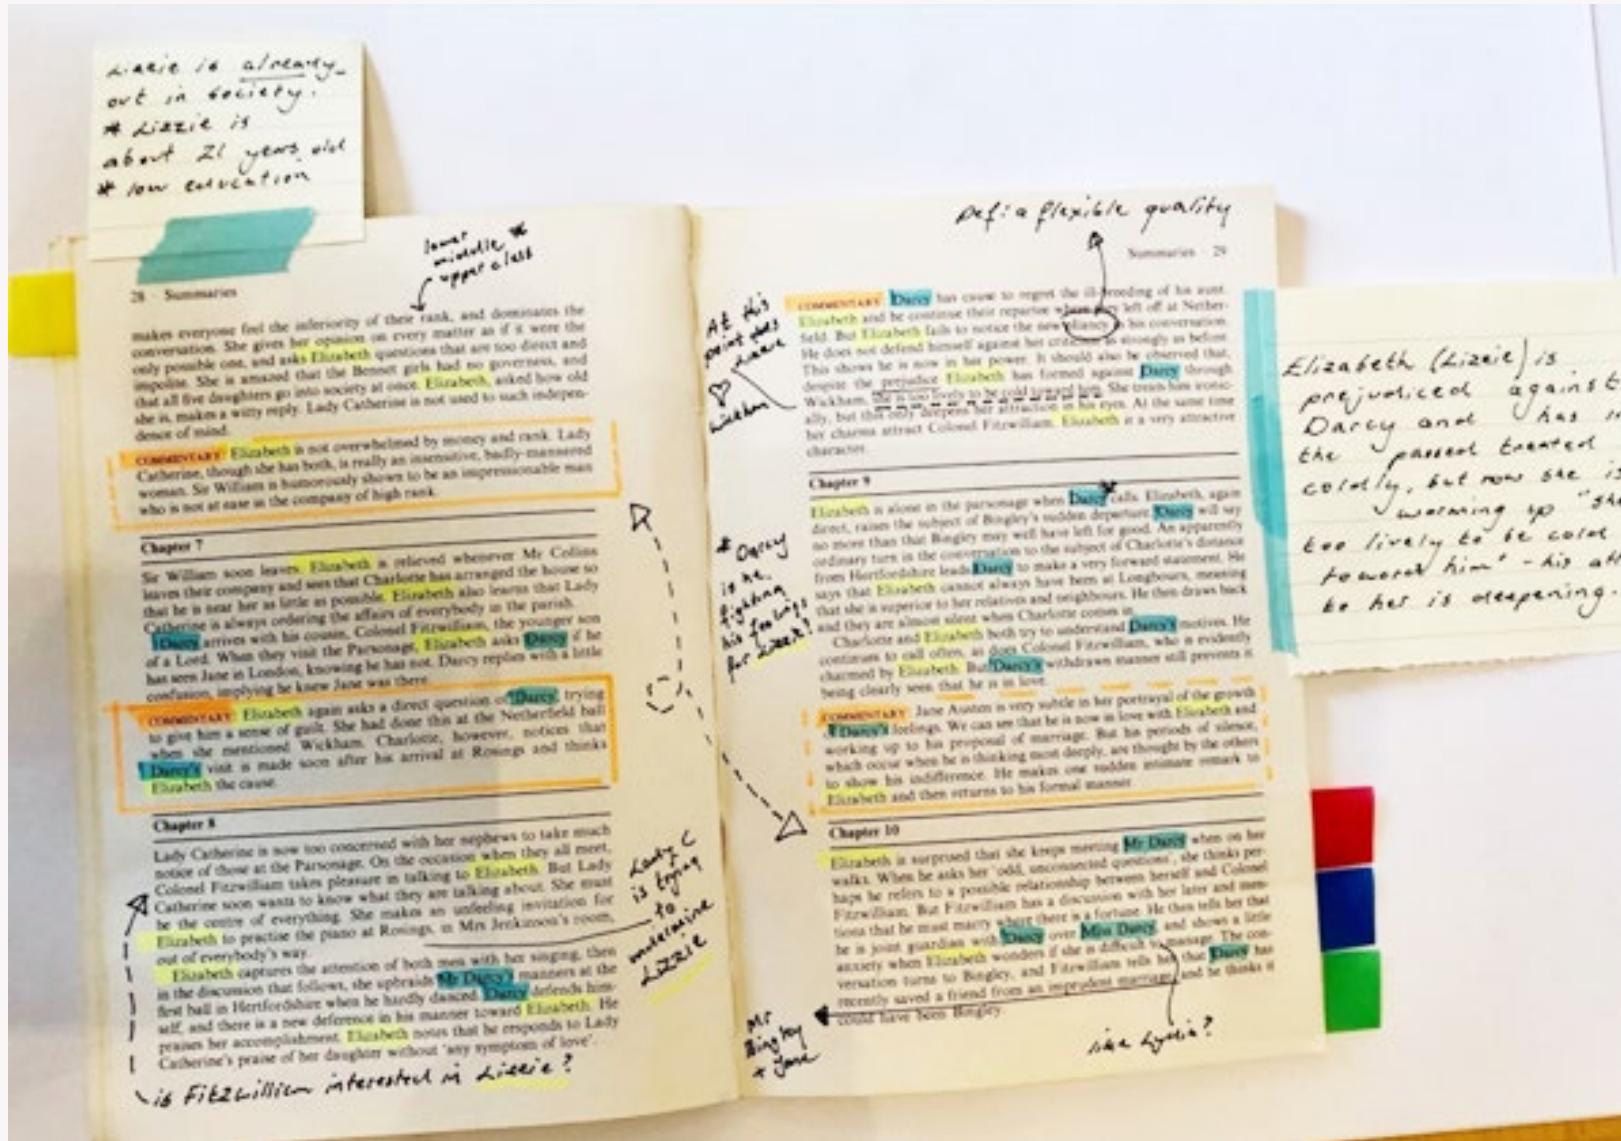 Lizzie is already
out in society.
* Lizzie is
about 21 years old
* low education
lower
middle *
upper class
28 Summaries
makes everyone feel the inferiority of their rank, and dominates the
conversation. She gives her opinion on every matter as if it were the
only possible one, and asks Elizabeth questions that are too direct and
impolite. She is amazed that the Bennet girls had no governess, and
that all five daughters go into society at once. Elizabeth, asked how old
she is, makes a witty reply. Lady Catherine is not used to such indepen-
dence of mind.
COMMENTARY: Elizabeth is not overwhelmed by money and rank. Lady
Catherine, though she has both, is really an insensitive, badly-mannered
woman. Sir William is humorously shown to be an impressionable man
who is not at ease in the company of high rank.
Chapter 7
Sir William soon leaves. Elizabeth is relieved whenever Mr Collins
leaves their company and sees that Charlotte has arranged the house so
that he is near her as little as possible. Elizabeth also learns that Lady
Catherine is always ordering the affairs of everybody in the parish.
Darcy arrives with his cousin, Colonel Fitzwilliam, the younger son
of a Lord. When they visit the Parsonage, Elizabeth asks Darcy if he
has seen Jane in London, knowing he has not. Darcy replies with a little
confusion, implying he knew Jane was there.
COMMENTARY: Elizabeth again asks a direct question of Darcy, trying
to give him a sense of guilt. She had done this at the Netherfield ball
when she mentioned Wickham. Charlotte, however, notices that
Darcy's visit is made soon after his arrival at Rosings and thinks
Elizabeth the cause.
Chapter 8
Lady Catherine is now too concerned with her nephews to take much
notice of those at the Parsonage. On the occasion when they all meet,
Colonel Fitzwilliam takes pleasure in talking to Elizabeth. But Lady
Catherine soon wants to know what they are talking about. She must
be the centre of everything. She makes an unfeeling invitation for
Elizabeth to practise the piano at Rosings, in Mrs Jenkinson's room,
out of everybody's way.
Elizabeth captures the attention of both men with her singing, then
in the discussion that follows, she upbraids Mr Darcy's manners at the
first ball in Hertfordshire when he hardly danced. Darcy defends him-
self, and there is a new deference in his manner toward Elizabeth. He
praises her accomplishment. Elizabeth notes that he responds to Lady
Catherine's praise of her daughter without 'any symptom of love'.
is Fitzwilliam interested in Lizzie?
Lady C
is trying
to
undermine
Lizzie
Def: a flexible quality
Summaries 29
COMMENTARY: Darcy has cause to regret the ill-breeding of his aunt.
Elizabeth and he continue their repartee where they left off at Nether-
field. But Elizabeth fails to notice the new pliancy in his conversation.
He does not defend himself against her criticism as strongly as before.
This shows he is now in her power. It should also be observed that,
despite the prejudice Elizabeth has formed against Darcy through
Wickham, she is too lively to be cold toward him. She treats him ironic-
ally, but this only deepens her attraction in his eyes. At the same time
her charms attract Colonel Fitzwilliam. Elizabeth is a very attractive
character.
At this
point does
Lizzie
♡
Wickham
Chapter 9
Elizabeth is alone in the parsonage when Darcy calls. Elizabeth, again
direct, raises the subject of Bingley's sudden departure. Darcy will say
no more than that Bingley may well have left for good. An apparently
ordinary turn in the conversation to the subject of Charlotte's distance
from Hertfordshire leads Darcy to make a very forward statement. He
says that Elizabeth cannot always have been at Longbourn, meaning
that she is superior to her relatives and neighbours. He then draws back
and they are almost silent when Charlotte comes in.
Charlotte and Elizabeth both try to understand Darcy's motives. He
continues to call often, as does Colonel Fitzwilliam, who is evidently
charmed by Elizabeth. But Darcy's withdrawn manner still prevents it
being clearly seen that he is in love.
* Darcy
is he
fighting
his feelings
for Lizzie?
COMMENTARY: Jane Austen is very subtle in her portrayal of the growth
of Darcy's feelings. We can see that he is now in love with Elizabeth and
working up to his proposal of marriage. But his periods of silence,
which occur when he is thinking most deeply, are thought by the others
to show his indifference. He makes one sudden intimate remark to
Elizabeth and then returns to his formal manner.
Chapter 10
Elizabeth is surprised that she keeps meeting Mr Darcy when on her
walks. When he asks her 'odd, unconnected questions', she thinks per-
haps he refers to a possible relationship between herself and Colonel
Fitzwilliam. But Fitzwilliam has a discussion with her later and men-
tions that he must marry where there is a fortune. He then tells her that
he is joint guardian with Darcy over Miss Darcy, and shows a little
anxiety when Elizabeth wonders if she is difficult to manage. The con-
versation turns to Bingley, and Fitzwilliam tells her that Darcy has
recently saved a friend from an imprudent marriage, and he thinks it
could have been Bingley.
Mr
Bingley
+ Jane
like Lydia?
Elizabeth (Lizzie) is
prejudiced against
Darcy and has
the passed treated
coldly, but now she is
warming up "she
too lively to be cold
toward him" - his
to her is deepening.